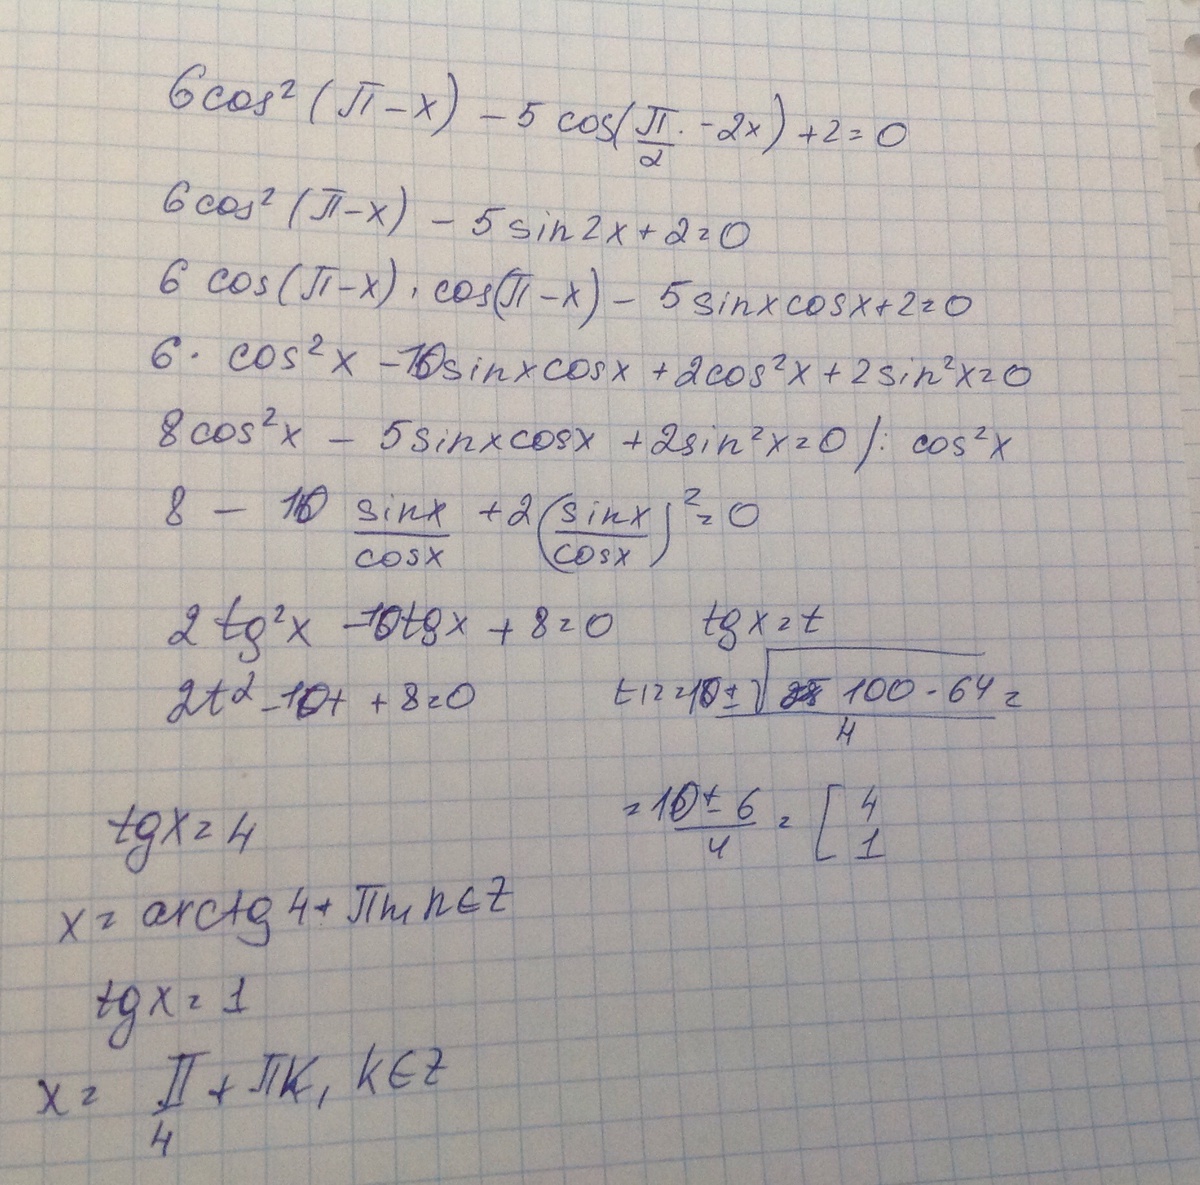 6cos²(π-x) - 5cos(π/2 - 2x) + 2 = 0
6cos²(π-x) - 5sin2x + 2 = 0
6 cos(π-x) · cos(π-x) - 5sinxcosx + 2 = 0
6 · cos²x - 10sinxcosx + 2cos²x + 2sin²x = 0
8cos²x - 5sinxcosx + 2sin²x = 0 /: cos²x
8 - 10 sinx/cosx + 2(sinx/cosx)² = 0
2tg²x - 10tgx + 8 = 0 tgx = t
2t² - 10t + 8 = 0 t12 = (10 ± √(100 - 64))/4 =
= (10 ± 6)/4 = [4 1
tgx = 4
x = arctg4 + πn, n∈Z
tgx = 1
x = π/4 + πk, k∈Z